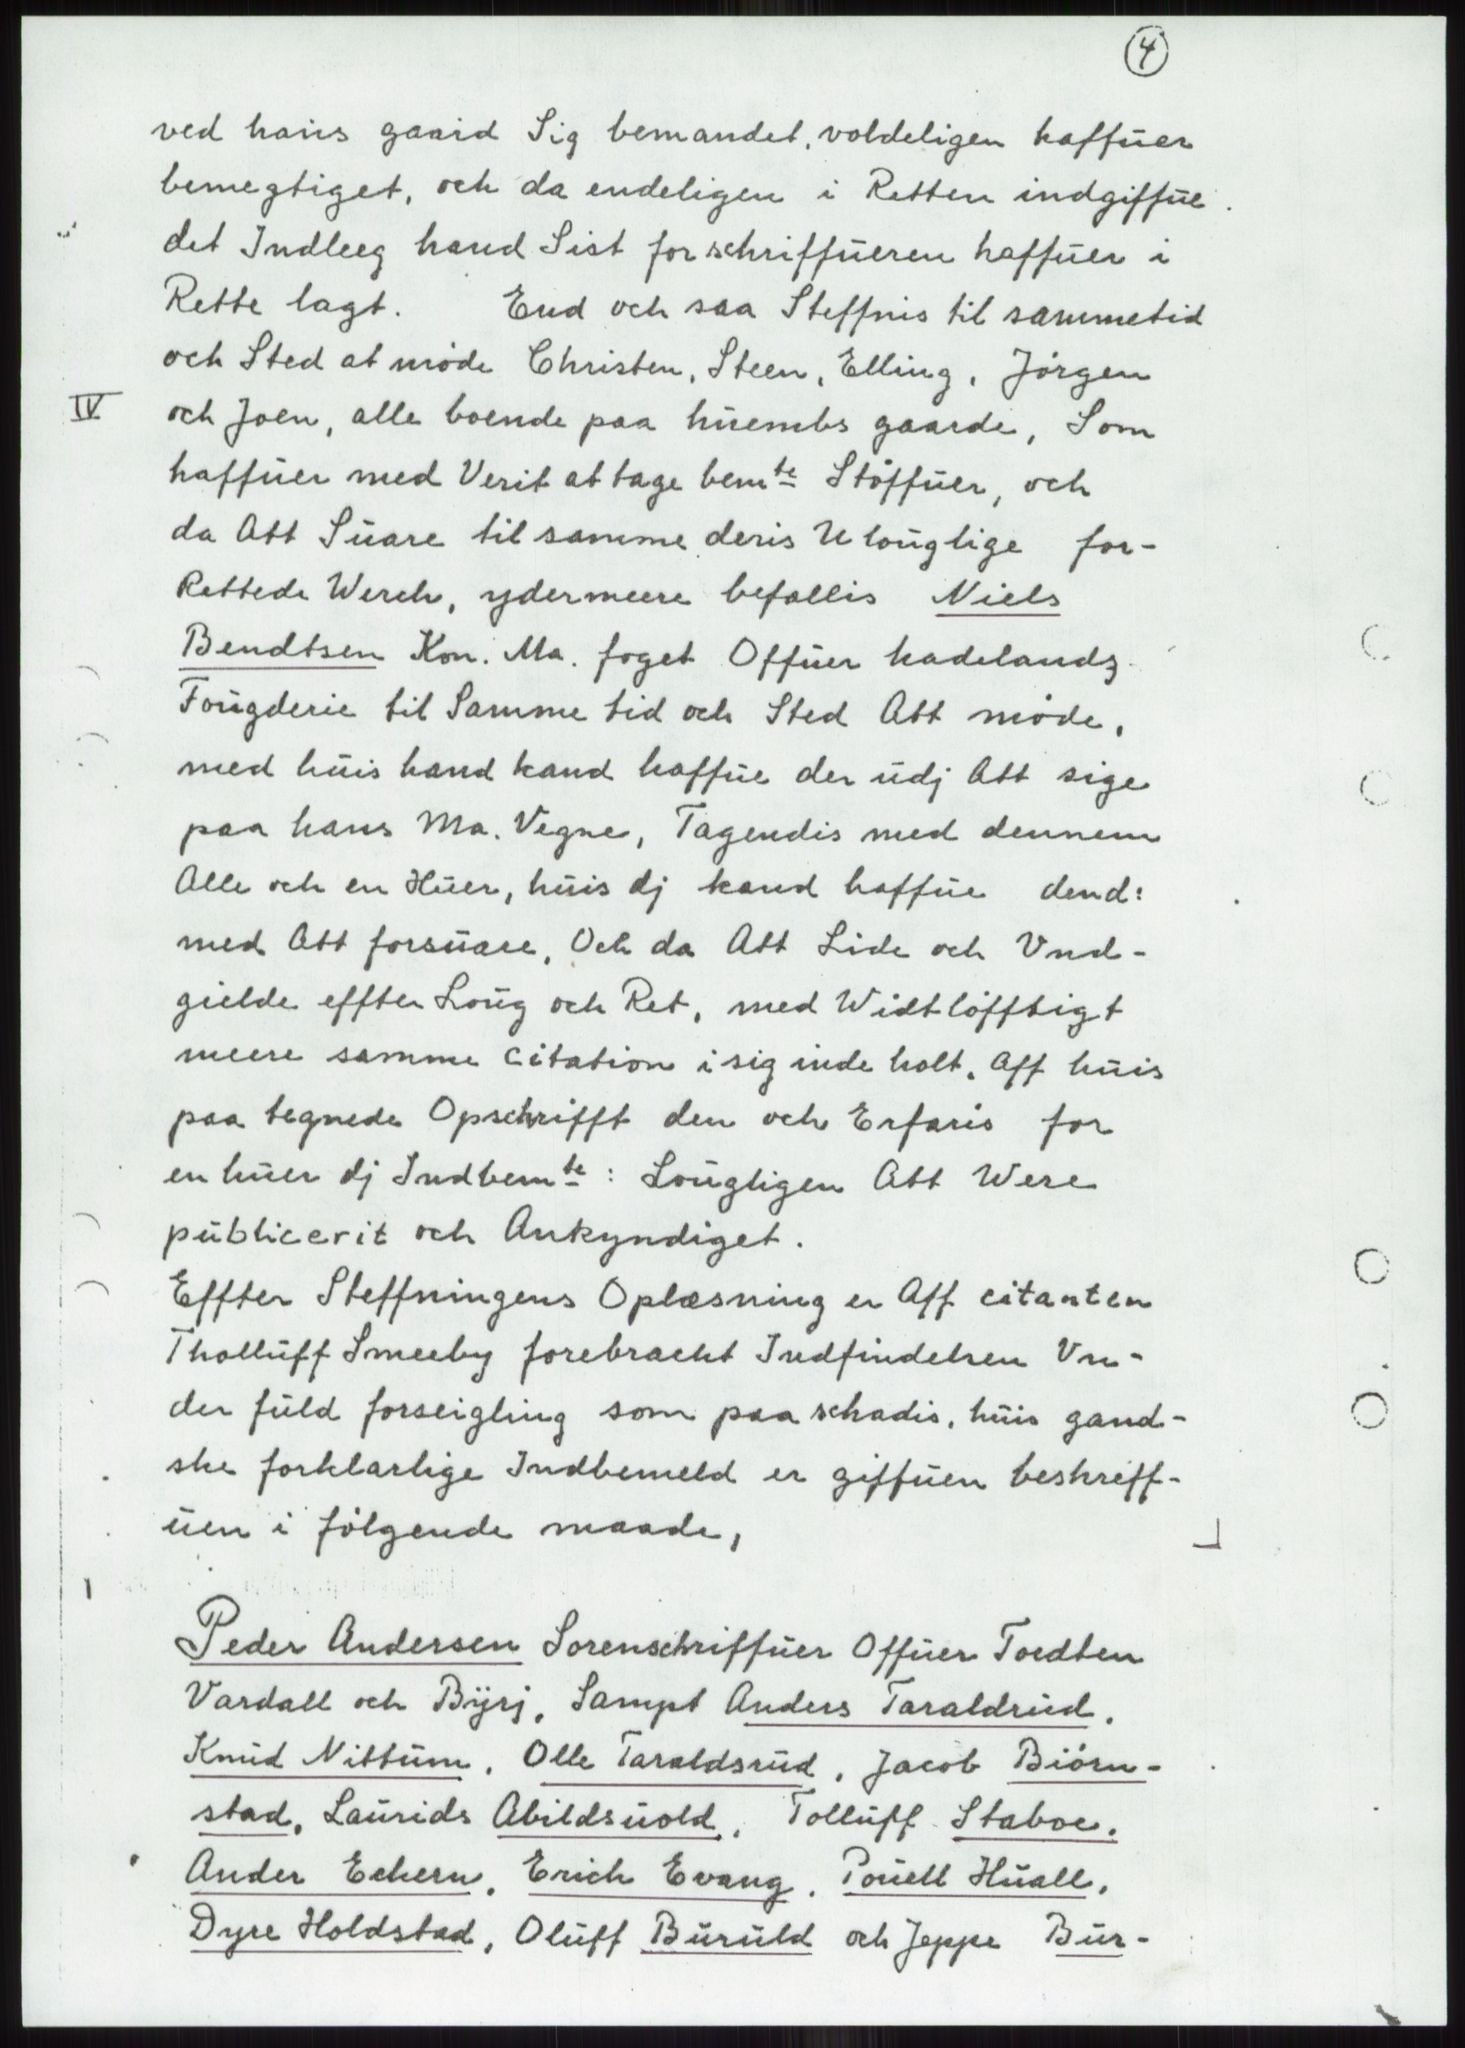 4
ved hans gaard Sig bemandet, voldeligen haffuer
bemegtiget, och da endeligen i Retten indgiffue
det Indleeg hand Sist forschriffueren haffuer i
Rette lagt. End och saa Steffnis til sammetid
och Sted at møde Christen, Steen, Elling, Jörgen
IV och Joen, alle boende paa huembs gaarde, Som
haffuer med Verit at tage bemte Stöffuer, och
da Att Suare til samme deris Ulouglige for-
Rettede Werch, ydermeere befallis Niels
Bendtsen Kon. Ma. foget Offuer hadelands
Fougderie til Samme tid och Sted Att møde,
med huis hand kand haffue der udj Att sige
paa hans Ma. Vegne, Tagendis med dennem
Alle och en Huer, huis dj kand haffue dend:
med Att forsuare, Och da Att Lide och Vnd-
gielde effter Loug och Ret, med Widtløfftigt
meere samme citation i sig inde holt, Aff huis
paa tegnede Opschrifft den och Erfaris for
en huer dj Indbemte: Lougligen Att Were
publicerit och Ankyndiget.
Effter Steffningens Oplæsning er Aff citanten
Tholluff Smeeby forebracht Indfindelsen Vn-
der fuld forseigling som paa schadis, huis gand-
ske forklarlige Indbemeld er giffuen beskreff-
uen i følgende maade,
Peder Andersen Sorenschriffuer Offuer Toedten
Vardall och Byrj, Sampt Anders Taraldrud,
Knud Nittum, Olle Taraldsrud, Jacob Biörn-
stad, Laurids Abildsuold, Tolluff Staboe,
Ander Echern, Erich Evang, Pouell Huall,
Dyre Holdstad, Oluff Buruld och Jeppe Bur-